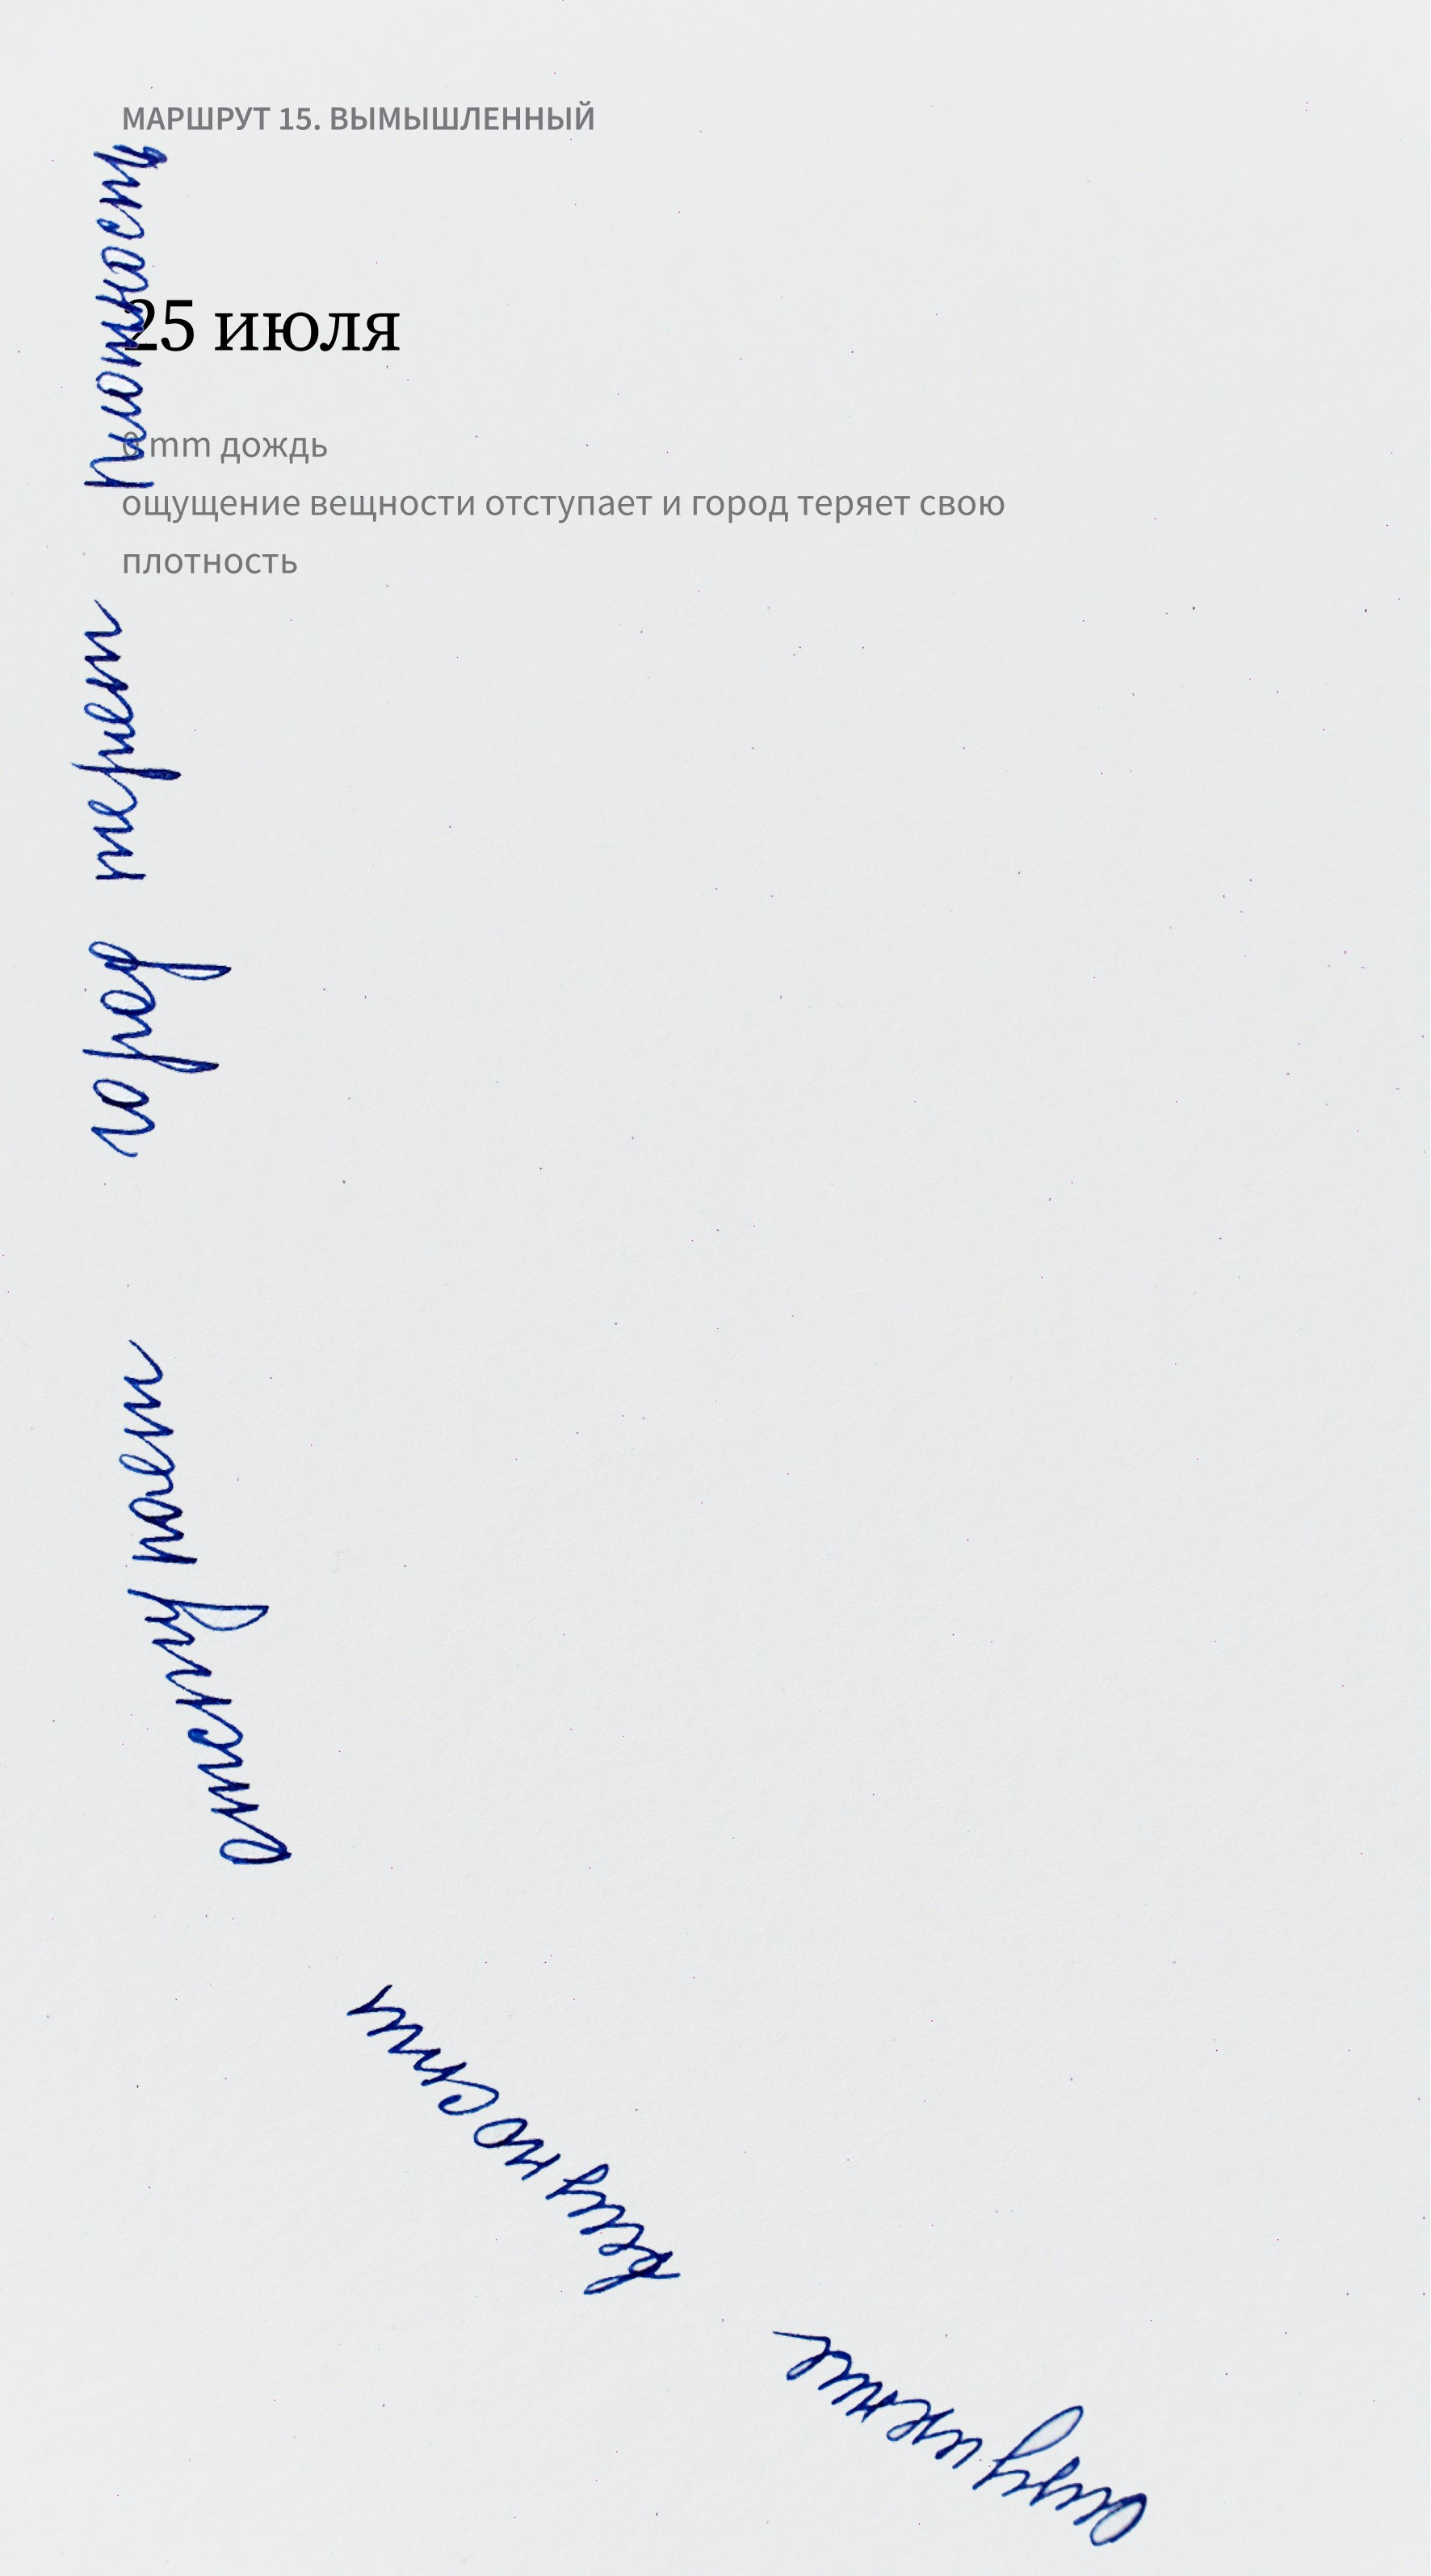 МАРШРУТ 15. ВЫМЫШЛЕННЫЙ
25 июля
mm дождь
ощущение вещности отступает и город теряет свою
плотность
ощущение
вещности
отступает
город
теряет
плотность